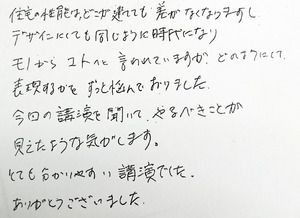 住宅の性能は、どこが建てても差がなくなりますし、
デザインにしても同じように時代になり
モノからコトへと言われていますが、どのようにして
表現するかをずっと悩んでおりました。
今回の講演を聞いて、やるべきことが
見えたような気がします。
とても分かりやすい講演でした。
ありがとうございました。